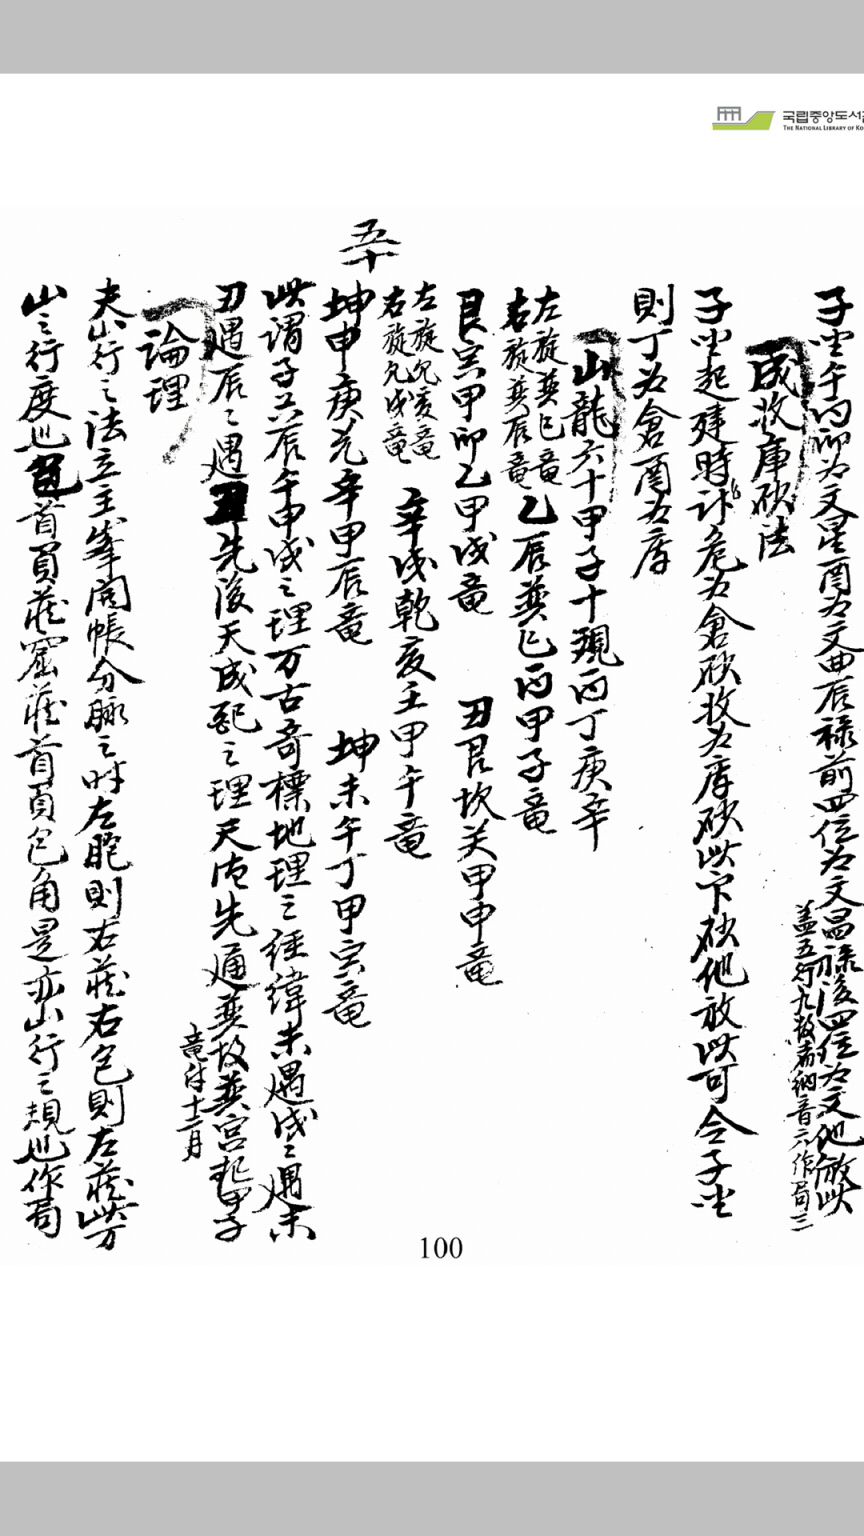 국립중앙도서관
THE NATIONAL LIBRARY OF KO
五十
子坐午丙卯为文星酉为文曲辰禄前四位为文昌禄後四位为文他倣此
盖五行九板看納音六作局三
成收庫砂法
子坐起建時計危为倉砂收为庫砂以下砂他放此可令子坐
則丁为倉酉为庫
山龍六十甲子十現丙丁庚辛
左旋巽巳竜
右旋巽辰竜
乙辰巽巳丙甲子竜
艮寅甲卯乙甲戌竜 丑艮坎癸甲申竜
左旋乾亥竜
右旋乾戌竜
辛戌乾亥壬甲午竜
坤申庚兌辛甲辰竜 坤未午丁甲寅竜
此謂子寅辰午申戌之理万古奇標地理之経緯未遇戌戌遇未
丑遇辰辰遇丑先後天成配之理天地先通巽故巽宮起甲子
竜付十二月
論理
夫山行之法立主峯開帳分脉之时左胞則右莊右包則左莊此万
山之行度也 首頁莊窟莊首頁包角是亦山行之規也作局
100